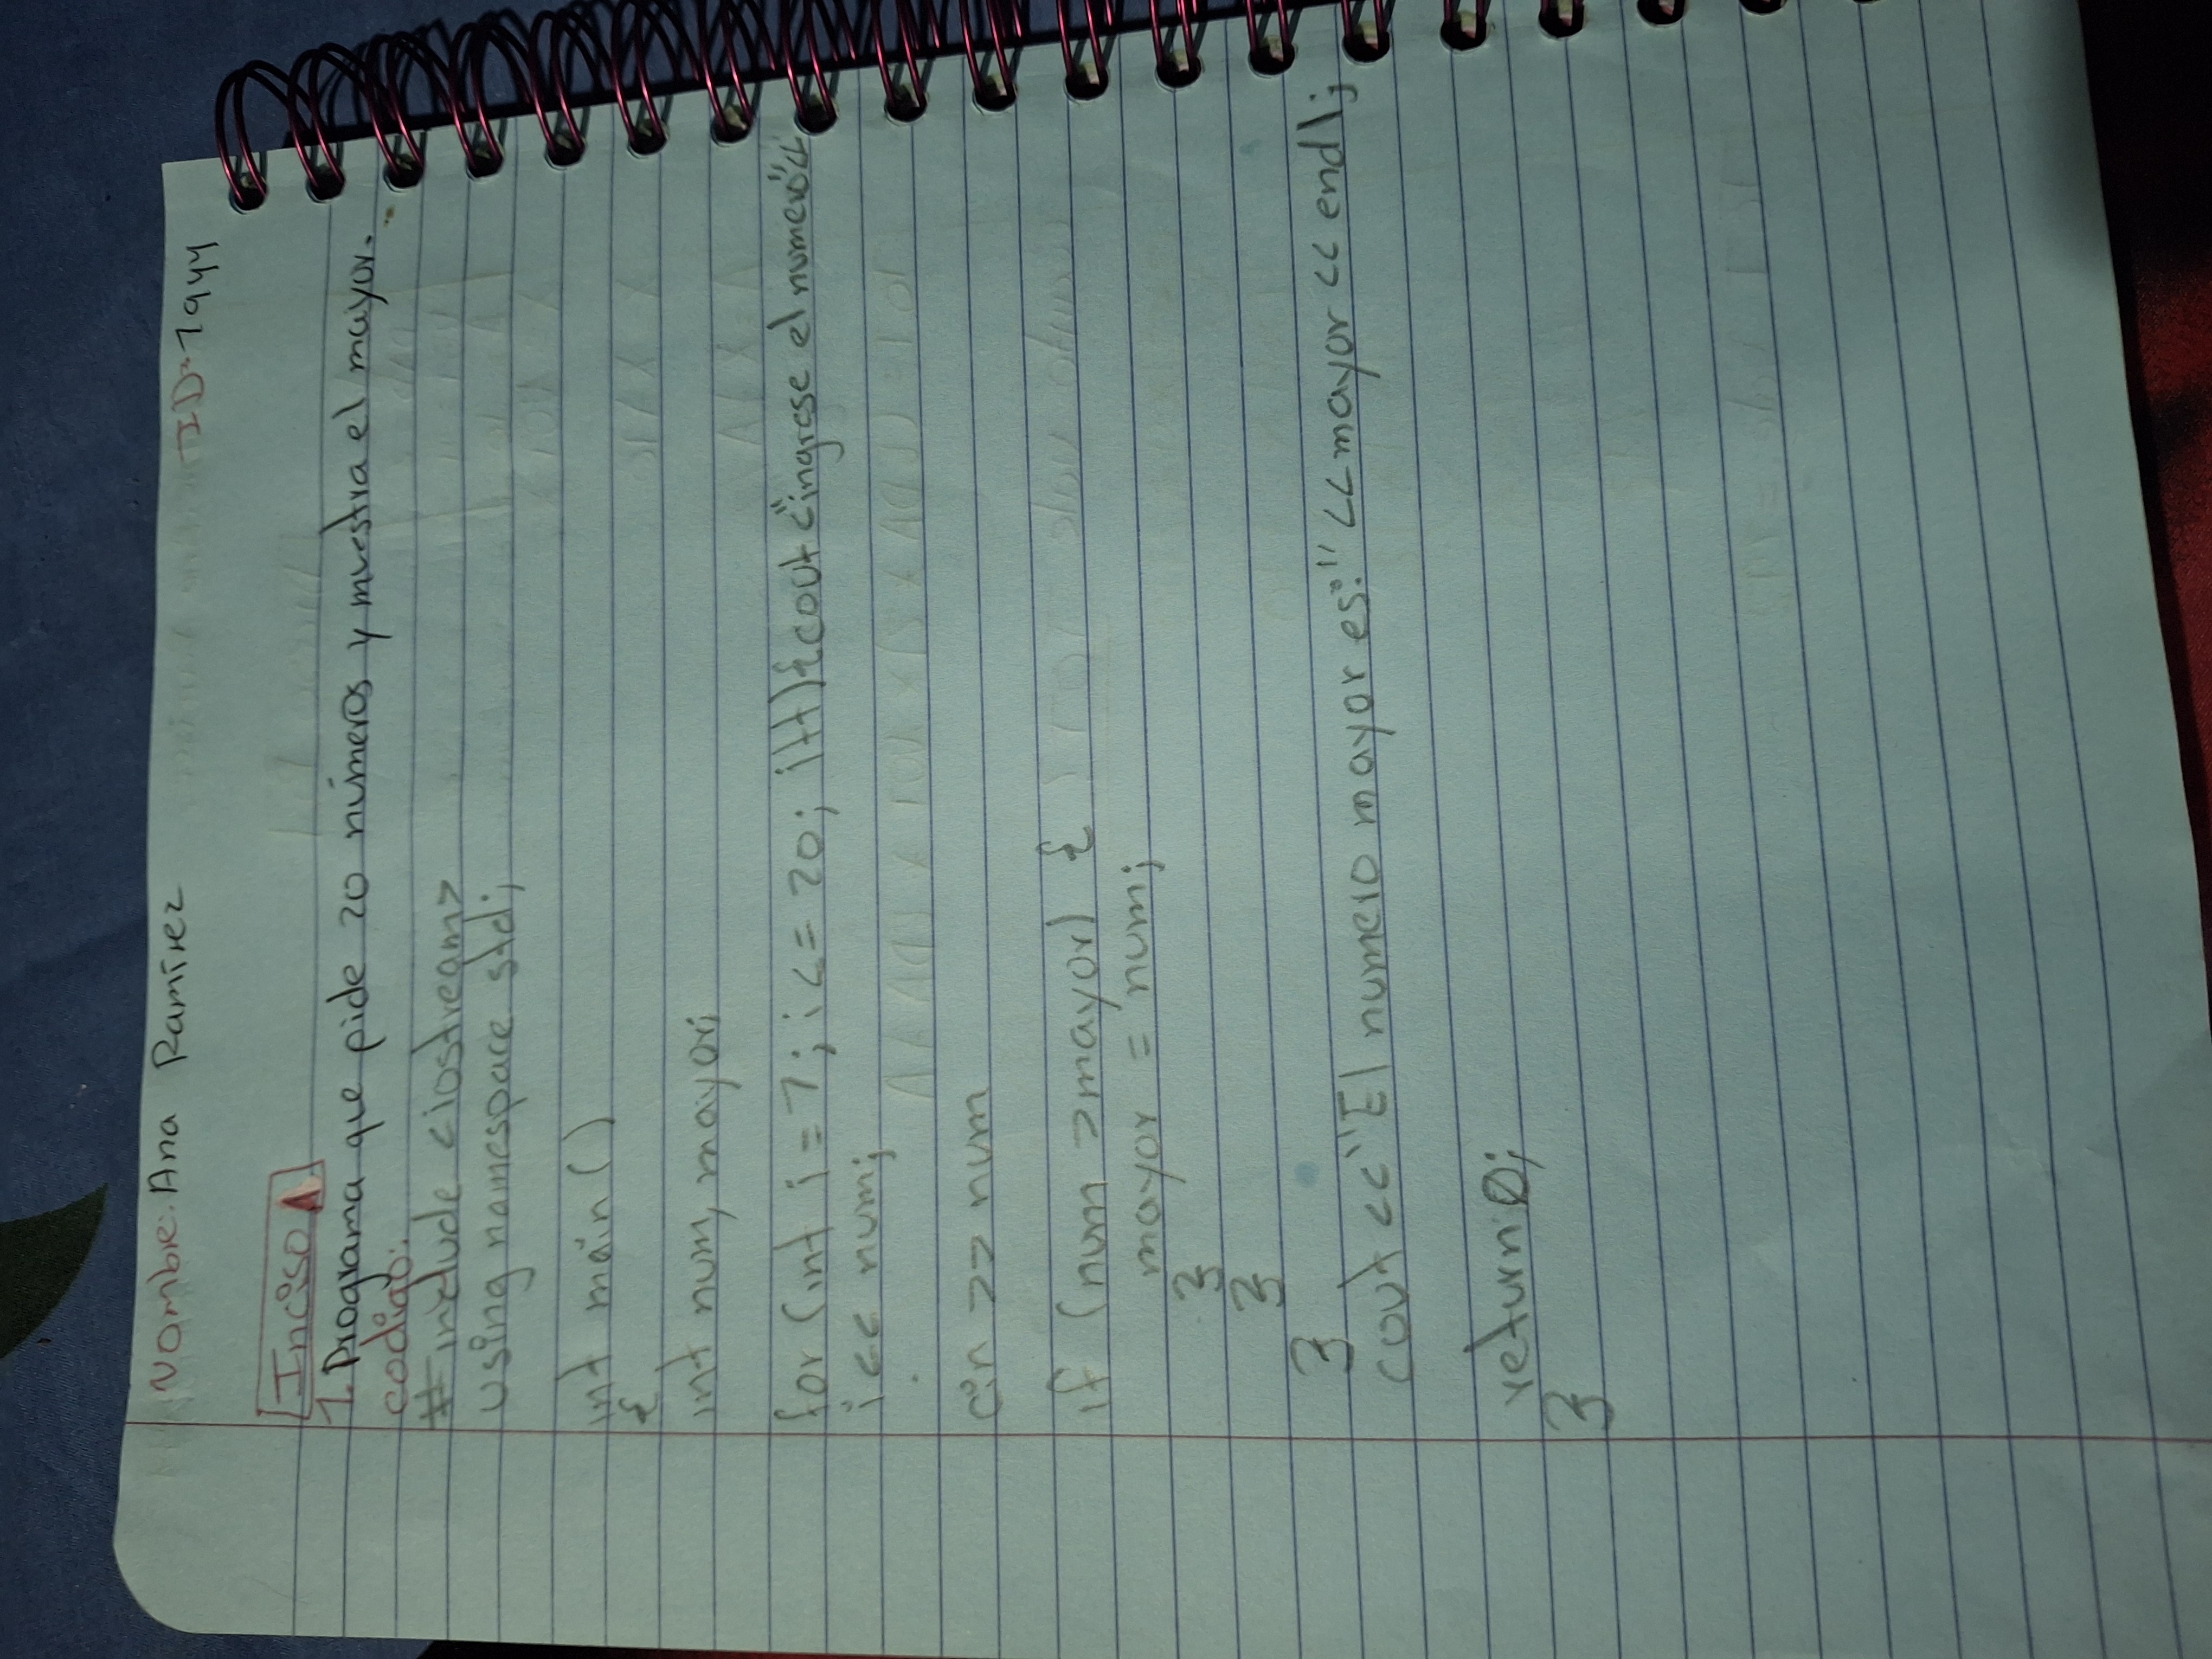 Nombre: Ana Ramírez ID: 1944
Inciso A
1. Programa que pide 20 números y muestra el mayor.
codigo:
#include <iostream>
using namespace std;
int main ()
{
int num, mayor;
for (int i = 1; i <= 20; i++) { cout <"ingrese el numero"<<
i << num;
cin >> num
if (num > mayor) {
mayor = num;
}
}
}
cout << "El numero mayor es:" << mayor << endl;
return 0;
}